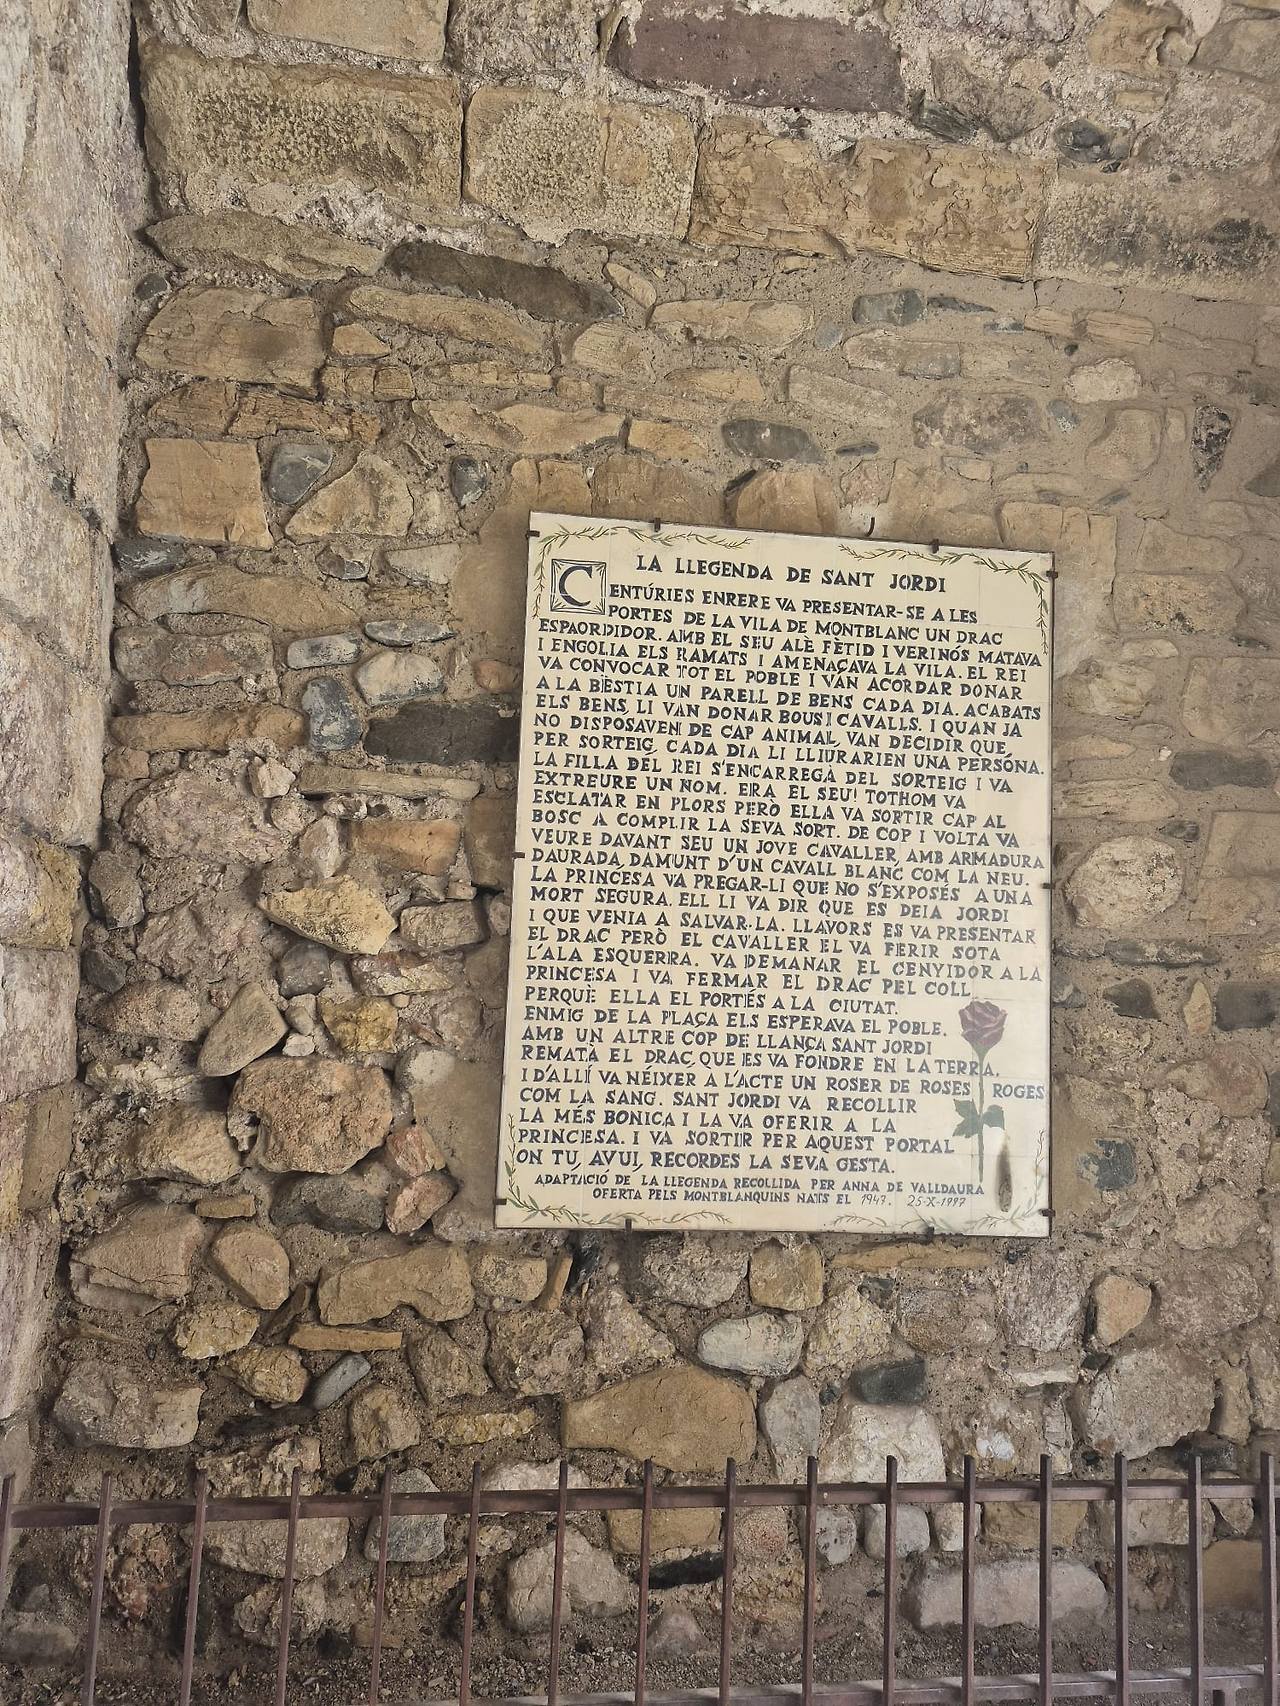 LA LLEGENDA DE SANT JORDI
CENTÚRIES ENRERE VA PRESENTAR-SE A LES
PORTES DE LA VILA DE MONTBLANC UN DRAC
ESPAORDIDOR. AMB EL SEU ALÈ FÈTID I VERINÓS MATAVA
I ENGOLIA ELS RAMATS I AMENAÇAVA LA VILA. EL REI
VA CONVOCAR TOT EL POBLE I VAN ACORDAR DONAR
A LA BÈSTIA UN PARELL DE BENS CADA DIA. ACABATS
ELS BENS, LI VAN DONAR BOUS I CAVALLS. I QUAN JA
NO DISPOSAVEN DE CAP ANIMAL, VAN DECIDIR QUE,
PER SORTEIG, CADA DIA LI LLIURARIEN UNA PERSONA.
LA FILLA DEL REI S'ENCARREGÀ DEL SORTEIG I VA
EXTREURE UN NOM. ERA EL SEU! TOTHOM VA
ESCLATAR EN PLORS PERÒ ELLA VA SORTIR CAP AL
BOSC A COMPLIR LA SEVA SORT. DE COP I VOLTA VA
VEURE DAVANT SEU UN JOVE CAVALLER, AMB ARMADURA
DAURADA, DAMUNT D'UN CAVALL BLANC COM LA NEU.
LA PRINCESA VA PREGAR-LI QUE NO S'EXPOSÉS A UNA
MORT SEGURA. ELL LI VA DIR QUE ES DEIA JORDI
I QUE VENIA A SALVAR-LA. LLAVORS ES VA PRESENTAR
EL DRAC PERÒ EL CAVALLER EL VA FERIR SOTA
L'ALA ESQUERRA. VA DEMANAR EL CENYIDOR A LA
PRINCESA I VA FERMAR EL DRAC PEL COLL
PERQUÈ ELLA EL PORTÉS A LA CIUTAT.
ENMIG DE LA PLAÇA ELS ESPERAVA EL POBLE.
AMB UN ALTRE COP DE LLANÇA SANT JORDI
REMATÀ EL DRAC, QUE ES VA FONDRE EN LA TERRA,
I D'ALLÍ VA NÉIXER A L'ACTE UN ROSER DE ROSES ROGES
COM LA SANG. SANT JORDI VA RECOLLIR
LA MÉS BONICA I LA VA OFERIR A LA
PRINCESA. I VA SORTIR PER AQUEST PORTAL
ON TÚ, AVUI, RECORDES LA SEVA GESTA.
ADAPTACIÓ DE LA LLEGENDA RECOLLIDA PER ANNA DE VALLDAURA
OFERTA PELS MONTBLANQUINS NATS EL 1947. 25-X-1997